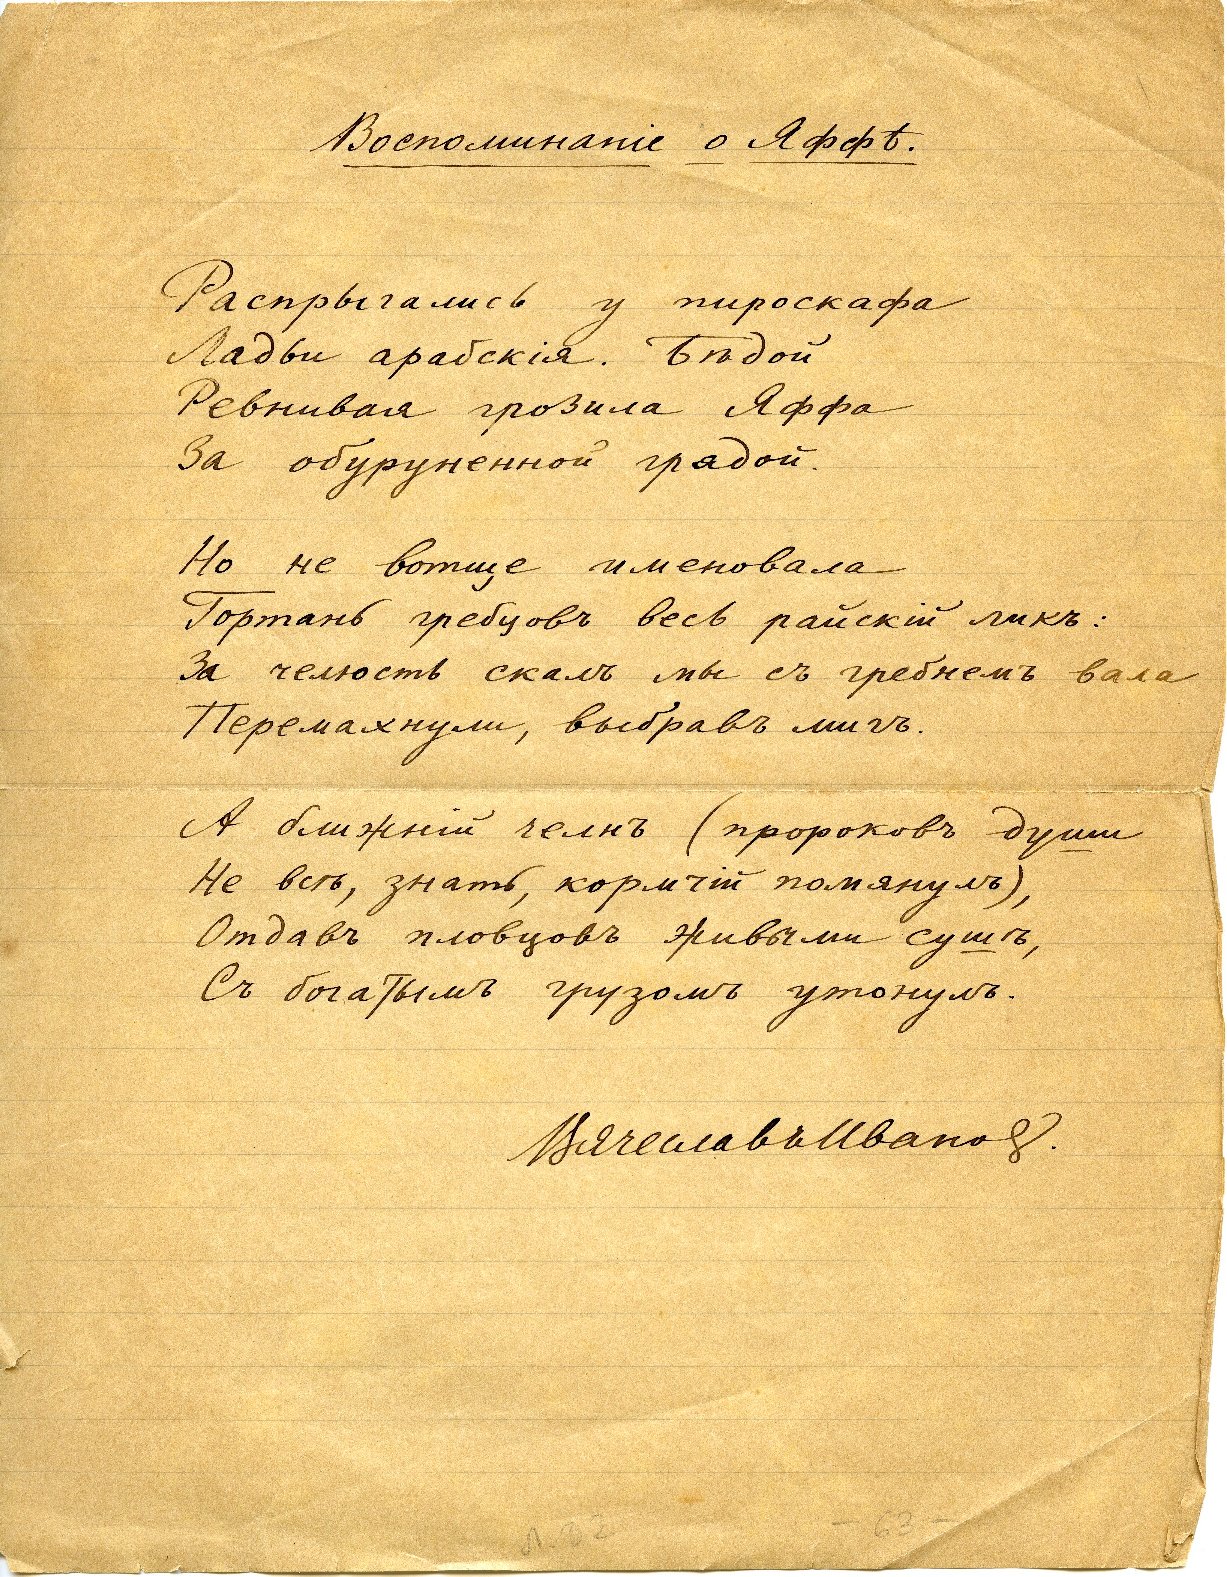 Воспоминанiе о Яффѣ.
Распрыгались у пироскафа
Ладьи арабскiя. Бѣдой
Ревнивая грозила Яффа
За обуруненной грядой.
Но не вотще именовала
Гортань гребцовъ весь райскiй ликъ:
За челюсть скалъ мы съ гребнемъ вала
Перемахнули, выбравъ мигъ.
А ближнiй челнъ (пророковъ души
Не всѣ, знать, кормчiй помянулъ),
Отдавъ пловцовъ живыми сушѣ,
Съ богатымъ грузомъ утонулъ.
Вячеславъ Иванов.
– 63 –